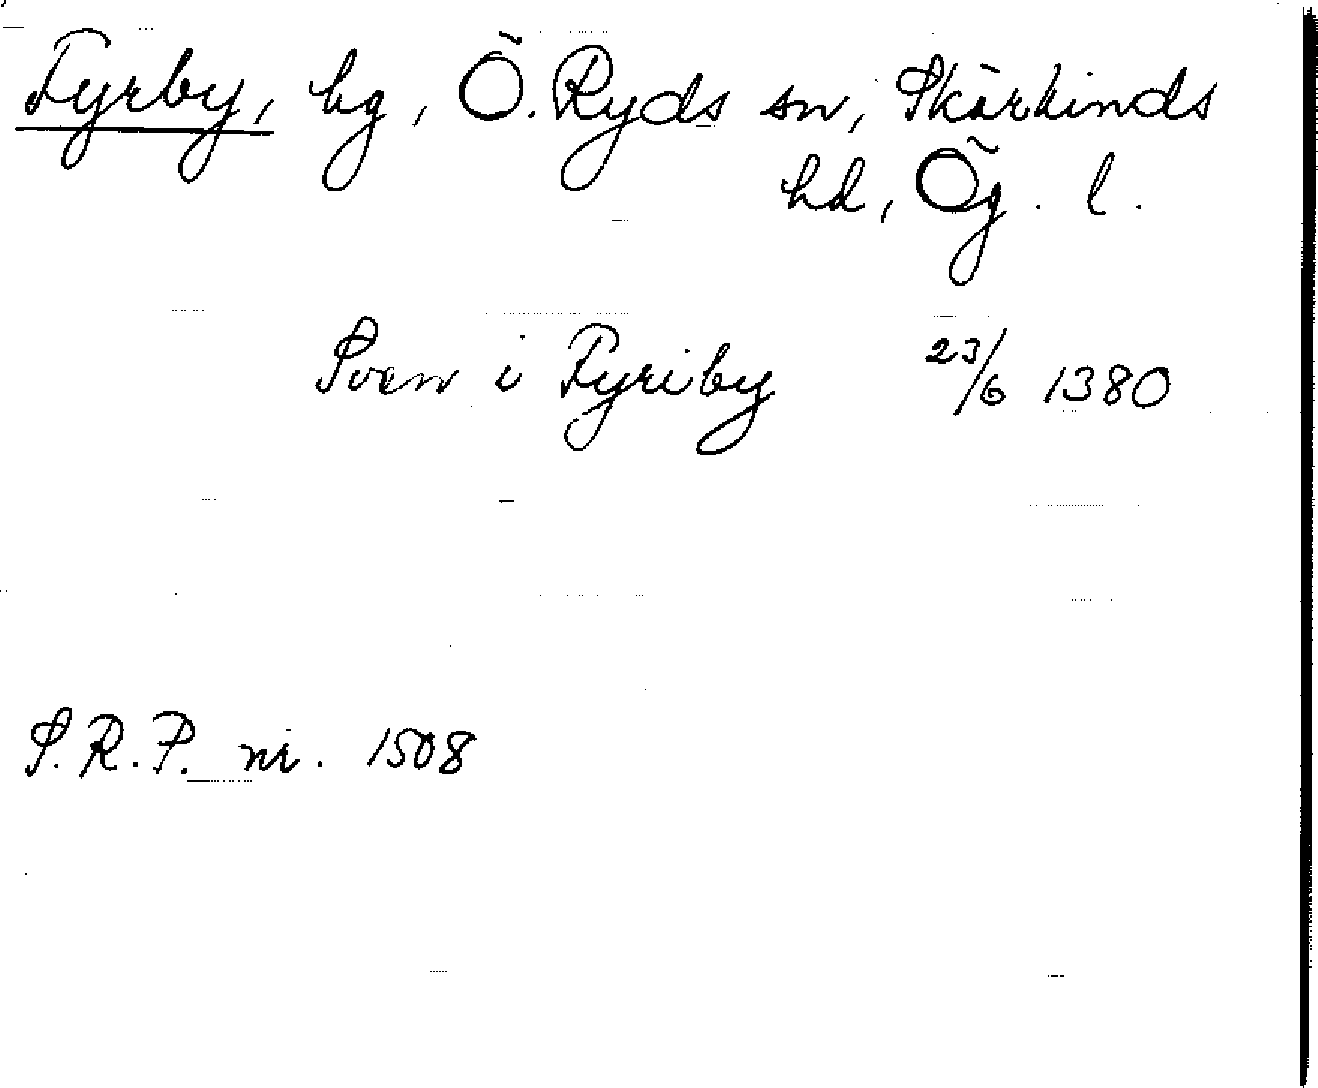 Fyrby, hg, Ö. Ryds sn, Skärkinds
hd, Ög. l.
Sven i Fyriby 23/6 1380
S.R.P. nr. 1508